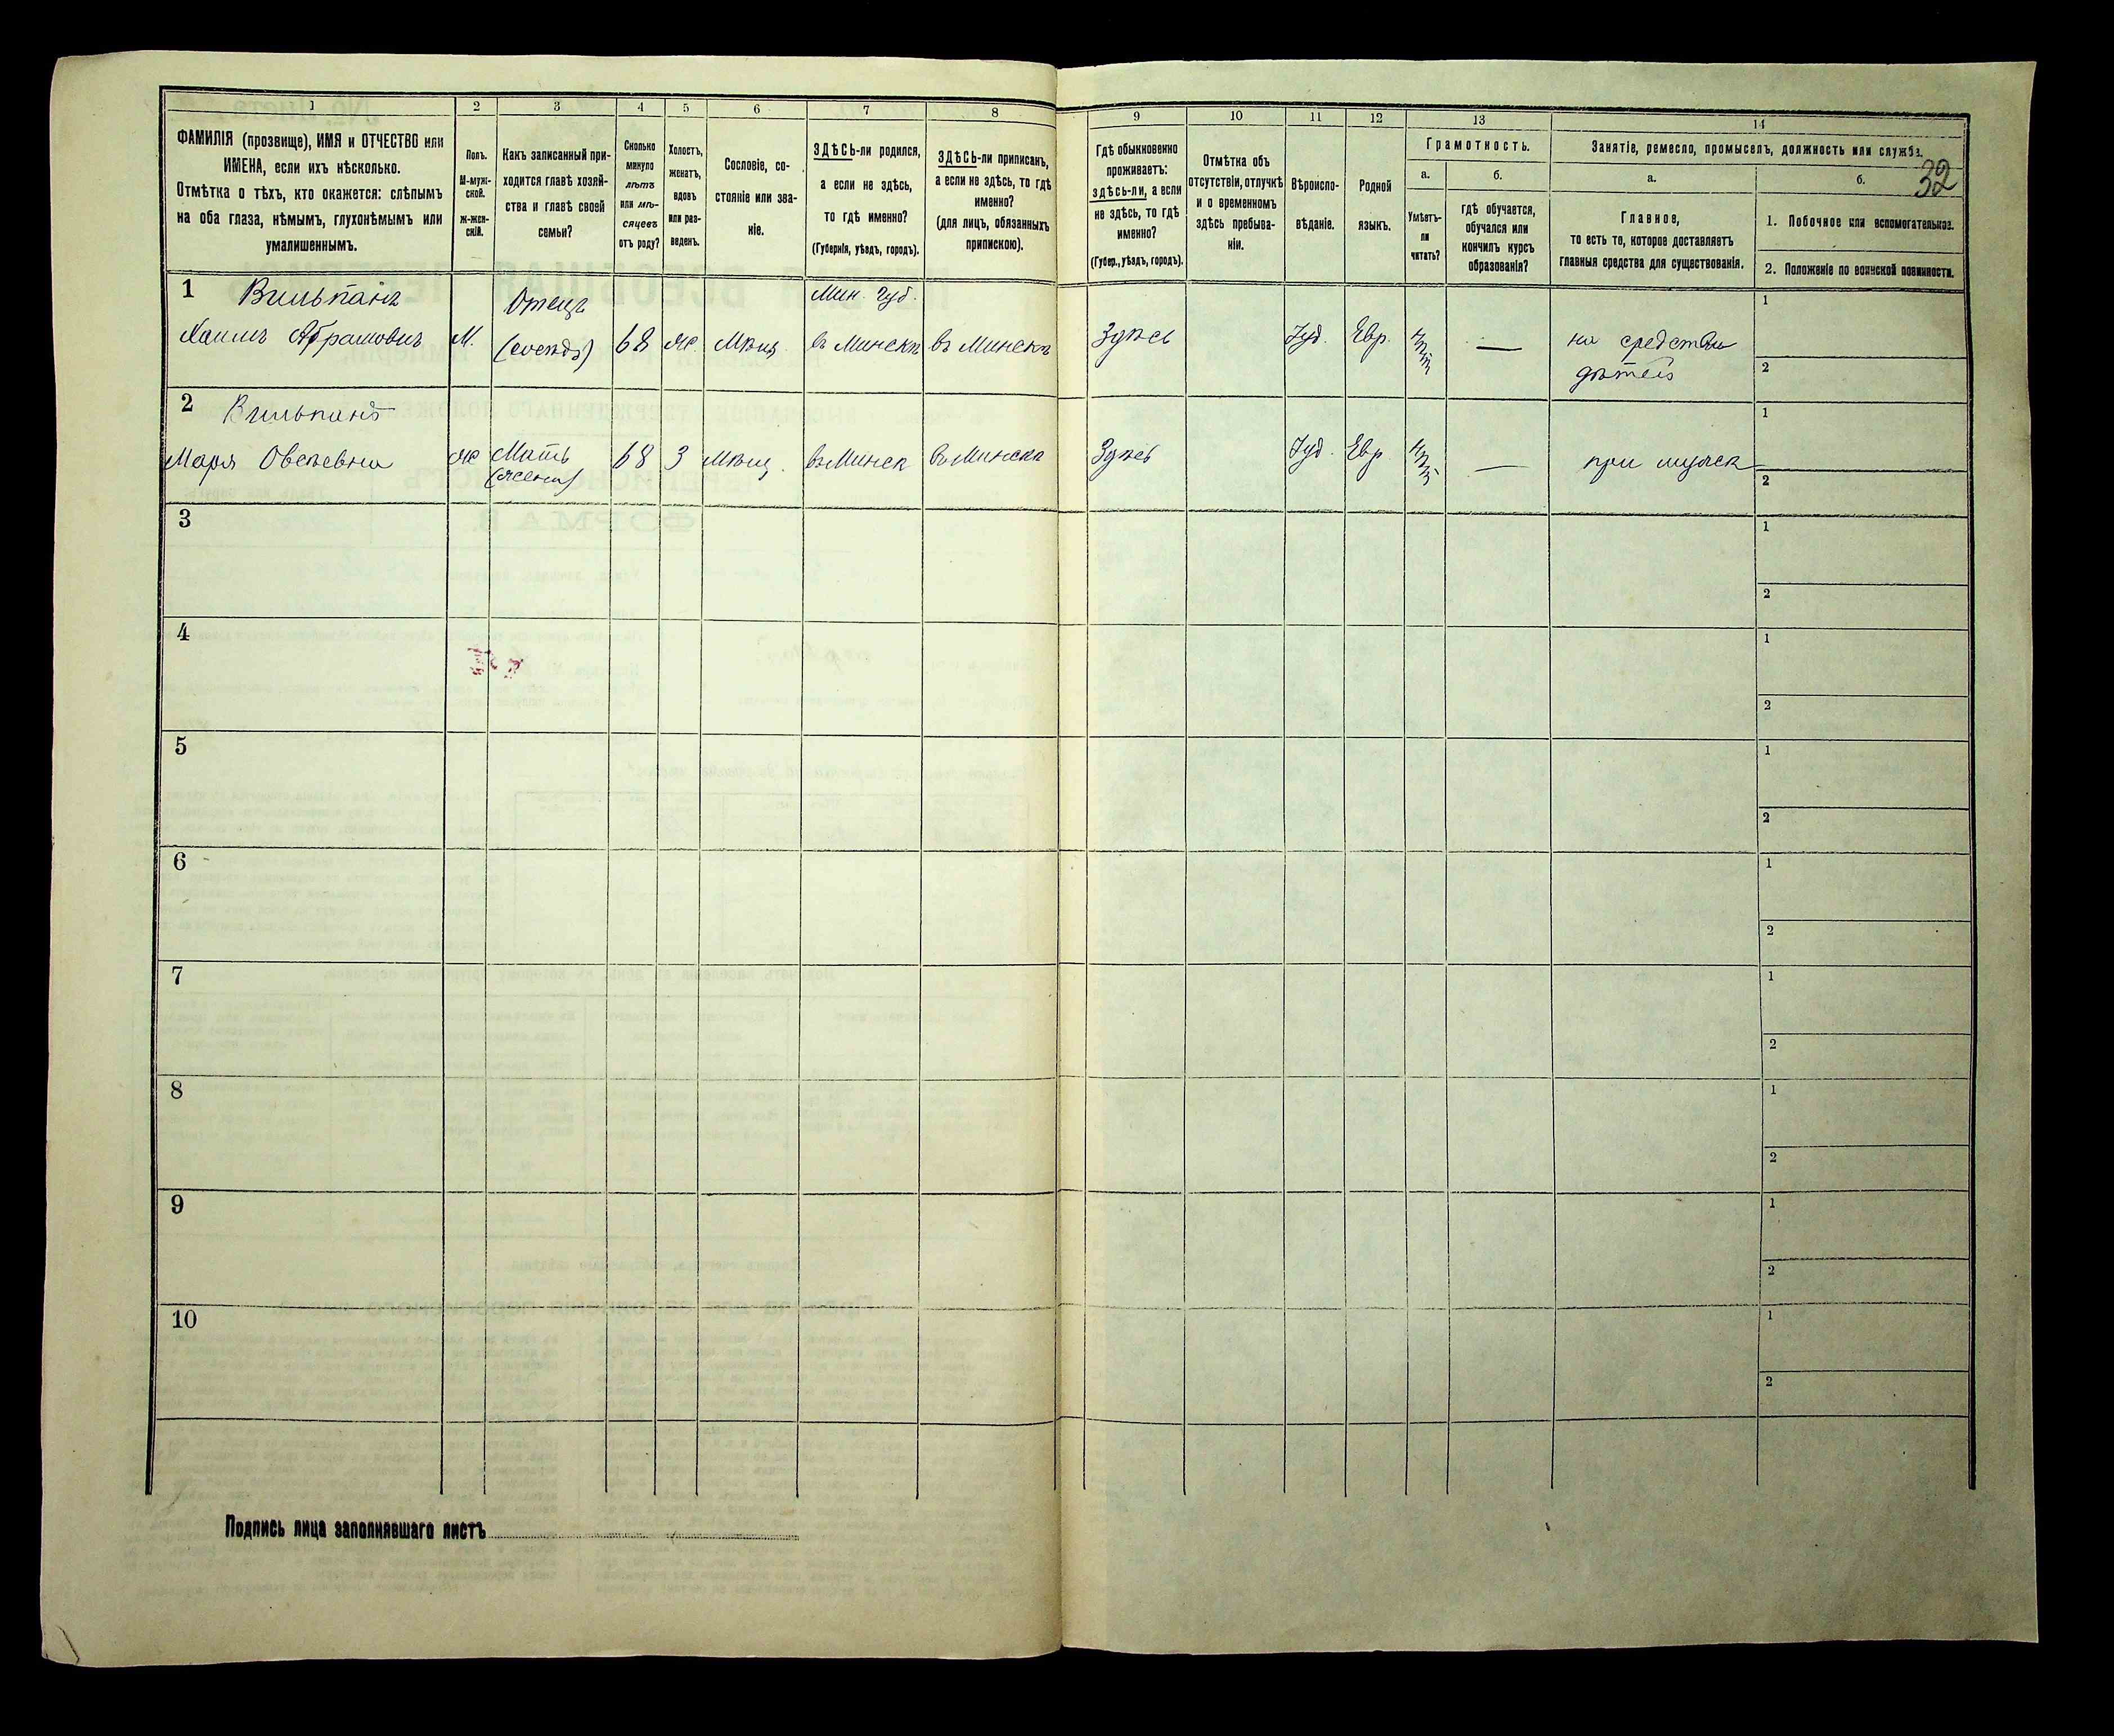 1
2
3
4
5
6
7
8
9
10
11
12
13
14
ФАМИЛІЯ (прозвище), ИМЯ и ОТЧЕСТВО или
ИМЕНА, если ихъ нѣсколько.
Отмѣтка о тѣхъ, кто окажется: слѣпымъ
на оба глаза, нѣмымъ, глухонѣмымъ или
умалишеннымъ.
Полъ.
М-муж-
ской.
ж-жен-
скій.
Какъ записанный при-
ходится главѣ хозяй-
ства и главѣ своей
семьи?
Сколько
минуло
лѣтъ
или мѣ-
сяцевъ
отъ роду?
Холостъ,
женатъ,
вдовъ
или раз-
веденъ.
Сословіе, со-
стояніе или зва-
ніе.
ЗДѢСЬ-ли родился,
а если не здѣсь,
то гдѣ именно?
(Губернія, уѣздъ, городъ).
ЗДѢСЬ-ли приписанъ,
а если не здѣсь, то гдѣ
именно?
(для лицъ, обязанныхъ
припискою).
Гдѣ обыкновенно
проживаетъ:
здѣсь-ли, а если
не здѣсь, то гдѣ
именно?
(Губер., уѣздъ, городъ).
Отмѣтка объ
отсутствіи, отлучкѣ
и о временномъ
здѣсь пребыва-
ніи.
Вѣроиспо-
вѣданіе.
Родной
языкъ.
Грамотность.
а.
Умѣетъ-
ли
читать?
б.
гдѣ обучается,
обучался или
кончилъ курсъ
образованія?
Занятіе, ремесло, промыселъ, должность или служба.
32
а.
Главное,
то есть то, которое доставляетъ
главныя средства для существованія.
б.
1. Побочное или вспомогательное.
2. Положеніе по воинской повинности.
1 Вильпанъ
Хаимъ Абрамовичъ
М.
Отецъ
68
Ж.
Мѣщ.
Мин. Губ.
въ Минскѣ
въ Минскѣ
Здѣсь
Іуд.
Евр.
—
на средства
дѣтей
1
2
2 Вильпанъ
Маря
Ж
Мать
(жена)
68
З
Мѣщ.
въ Минск
въ Минскѣ
Здѣсь
Іуд.
Евр.
—
при мужѣ
1
2
3
1
2
4
1
2
5
1
2
6
1
2
7
1
2
8
1
2
9
1
2
10
1
2
Подпись лица заполнявшаго листъ